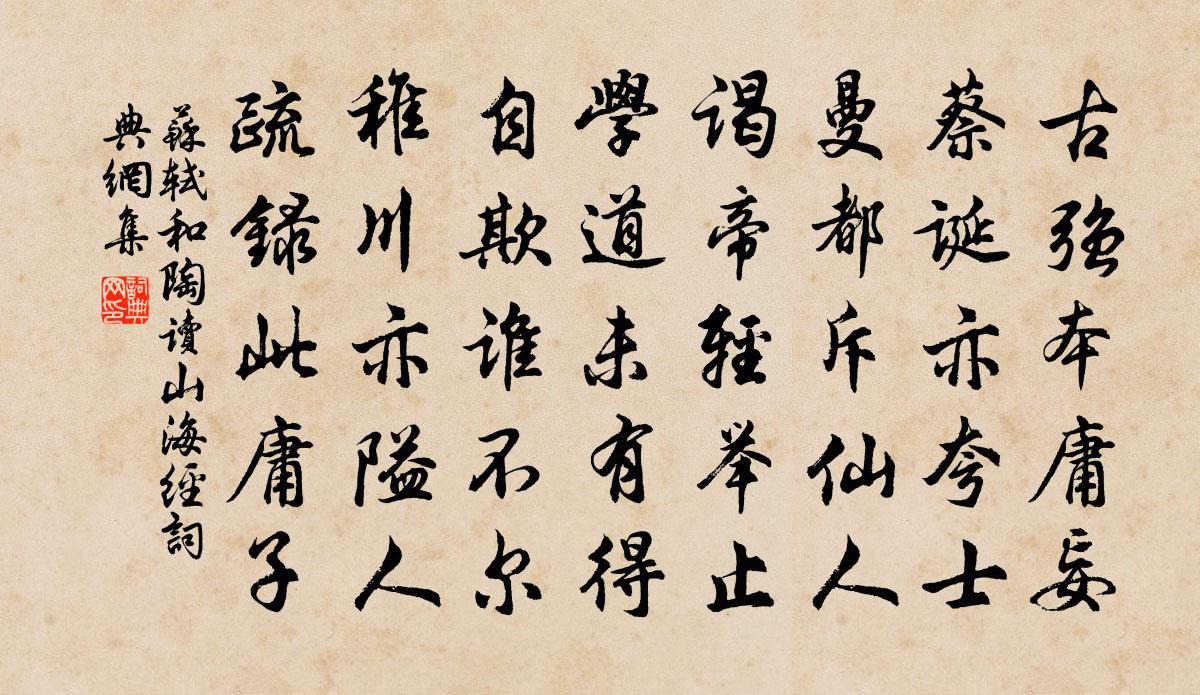 古強本庸妄
蔡誕亦夸士
曼都斥仙人
謁帝輕举止
學道未有得
自欺誰不尔
稚川亦隘人
疏錄此庸子
蘇軾和陶讀山海經詞
典網集
詞典
网印